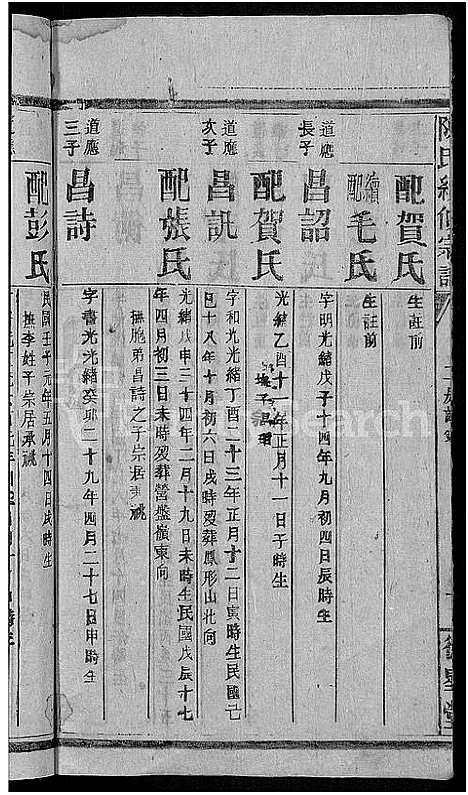 陳氏續修宗譜
配賀氏
生註前
續配毛氏
生註前
道應長子
昌詔
字明光光緒戊子十四年九月初四日辰時生
配賀氏
光緒乙酉十一年正月十一日子時生
道應次子
昌訊
字和光光緒丁酉二十三年正月十二日寅時生民國己
巳十八年十月初六日戌時歿葬鳳形山北向
配張氏
光緒戊申三十四年二月十九日未時生民國戊辰十七
年四月初三日未時歿葬營盤嶺東向
撫胞弟昌詩之子宗居承祧
道應三子
昌詩
字書光光緒癸卯二十九年四月二十七日申時生
配彭氏
民國壬子元年五月十四日戌時生
撫李姓子宗居承祧